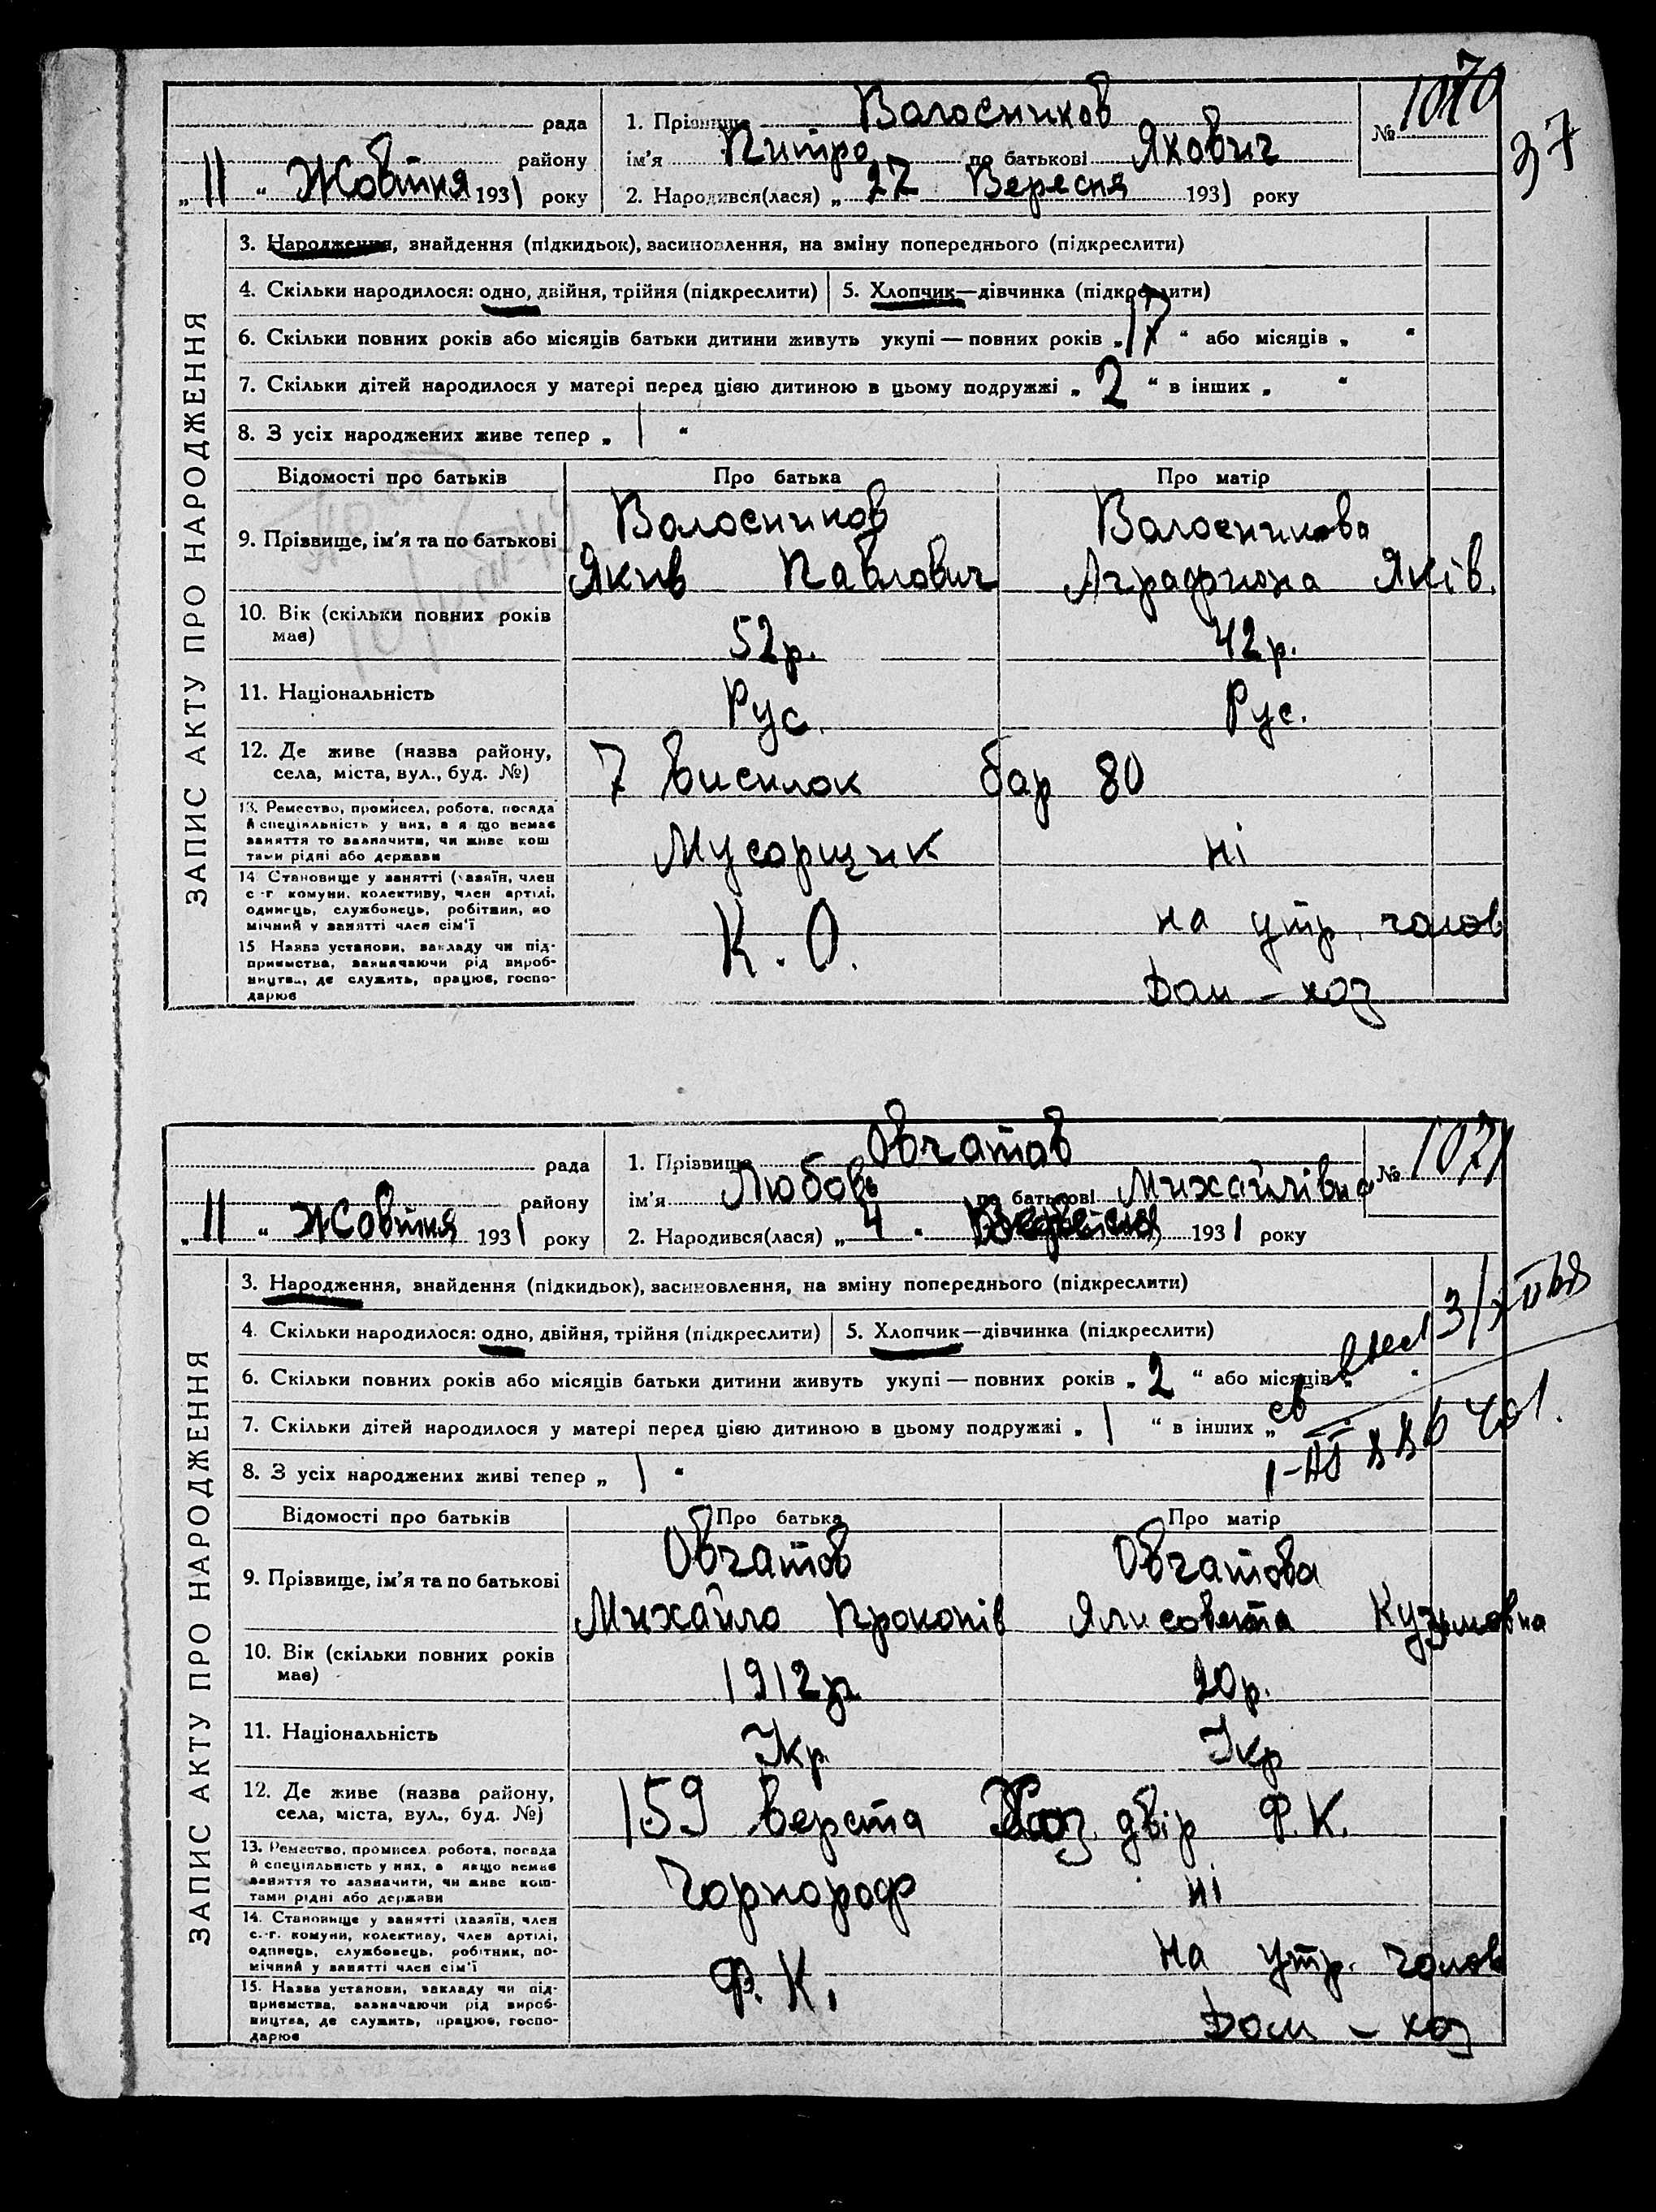 1070
37
рада
району
„ 11 " Жовтня 1931 року
1. Прізвище Валосников
ім'я Питро по батькові Якович
№
2. Народився(лася) „ 27 Вересня 1931 року
ЗАПИС АКТУ ПРО НАРОДЖЕННЯ
3. Народження, знайдення (підкидьок), засиновлення, на зміну попереднього (підкреслити)
4. Скільки народилося: одно, двійня, трійня (підкреслити) 5. Хлопчик—дівчинка (підкреслити)
6. Скільки повних років або місяців батьки дитини живуть укупі — повних років „ 17 " або місяців „ "
7. Скільки дітей народилося у матері перед цією дитиною в цьому подружжі „ 2 " в інших „ "
8. З усіх народжених живе тепер „ 1 "
Відомості про батьків Про батька Про матір
9. Прізвище, ім'я та по батькові
Валосников Валосникова
Якив Павлович Аграфиона Яків.
10. Вік (скільки повних років має) 52р. 42р.
11. Національність Рус. Рус.
12. Де живе (назва району, села, міста, вул., буд. №) 7 висилок бар 80
13. Ремество, промисел, робота, посада
й спеціяльність у них, а я що немає
заняття то зазначити, чи живе кош
тами рідні або держави
Мусорщик ні
14 Становище у занятті (хазяїн, член
с-г комуни, колективу, член артілі,
одинець, службовець, робітник, по
мічний у занятті член сім'ї
на утр. голов
15 Назва установи, закладу чи під-
приємства, зазначаючи рід вироб-
ництва, де служить, працює, госпо-
дарює
К. О.
Дом – хоз
рада
району
„ 11 " Жовтня 1931 року
1. Прізвище Овчатов
ім'я Любовь по батькові Михайлівна
№ 1071
2. Народився(лася) „ 4 " 1931 року
ЗАПИС АКТУ ПРО НАРОДЖЕННЯ
3. Народження, знайдення (підкидьок), засиновлення, на зміну попереднього (підкреслити)
4. Скільки народилося: одно, двійня, трійня (підкреслити) 5. Хлопчик—дівчинка (підкреслити)
6. Скільки повних років або місяців батьки дитини живуть укупі — повних років „ 2 " або місяців „ "
7. Скільки дітей народилося у матері перед цією дитиною в цьому подружжі „ 1 " в інших „
8. З усіх народжених живі тепер „ 1 "
Відомості про батьків Про батька Про матір
9. Прізвище, ім'я та по батькові
Овчатов Овчатова
Михайло Прокопів Ялисовета Кузьмовна
10. Вік (скільки повних років має) 1912р 20р.
11. Національність Укр. Укр
12. Де живе (назва району, села, міста, вул., буд. №) 159 верста Хоз. двір Ф.К.
13. Ремество, промисел, робота, посада
й спеціяльність у них, а якщо немає
заняття то зазначити, чи живе кош-
тами рідні або держави
Чорнороб ні
14. Становище у занятті (хазяїн, член
с.-г. комуни, колективу, член артілі,
одинець, службовець, робітник, по-
мічний у занятті член сім'ї
на утр. голов
15. Назва установи, закладу чи під-
приємства, зазначаючи рід вироб-
ництва, де служить, працює, госпо-
дарює
Ф. К.
Дом – хоз